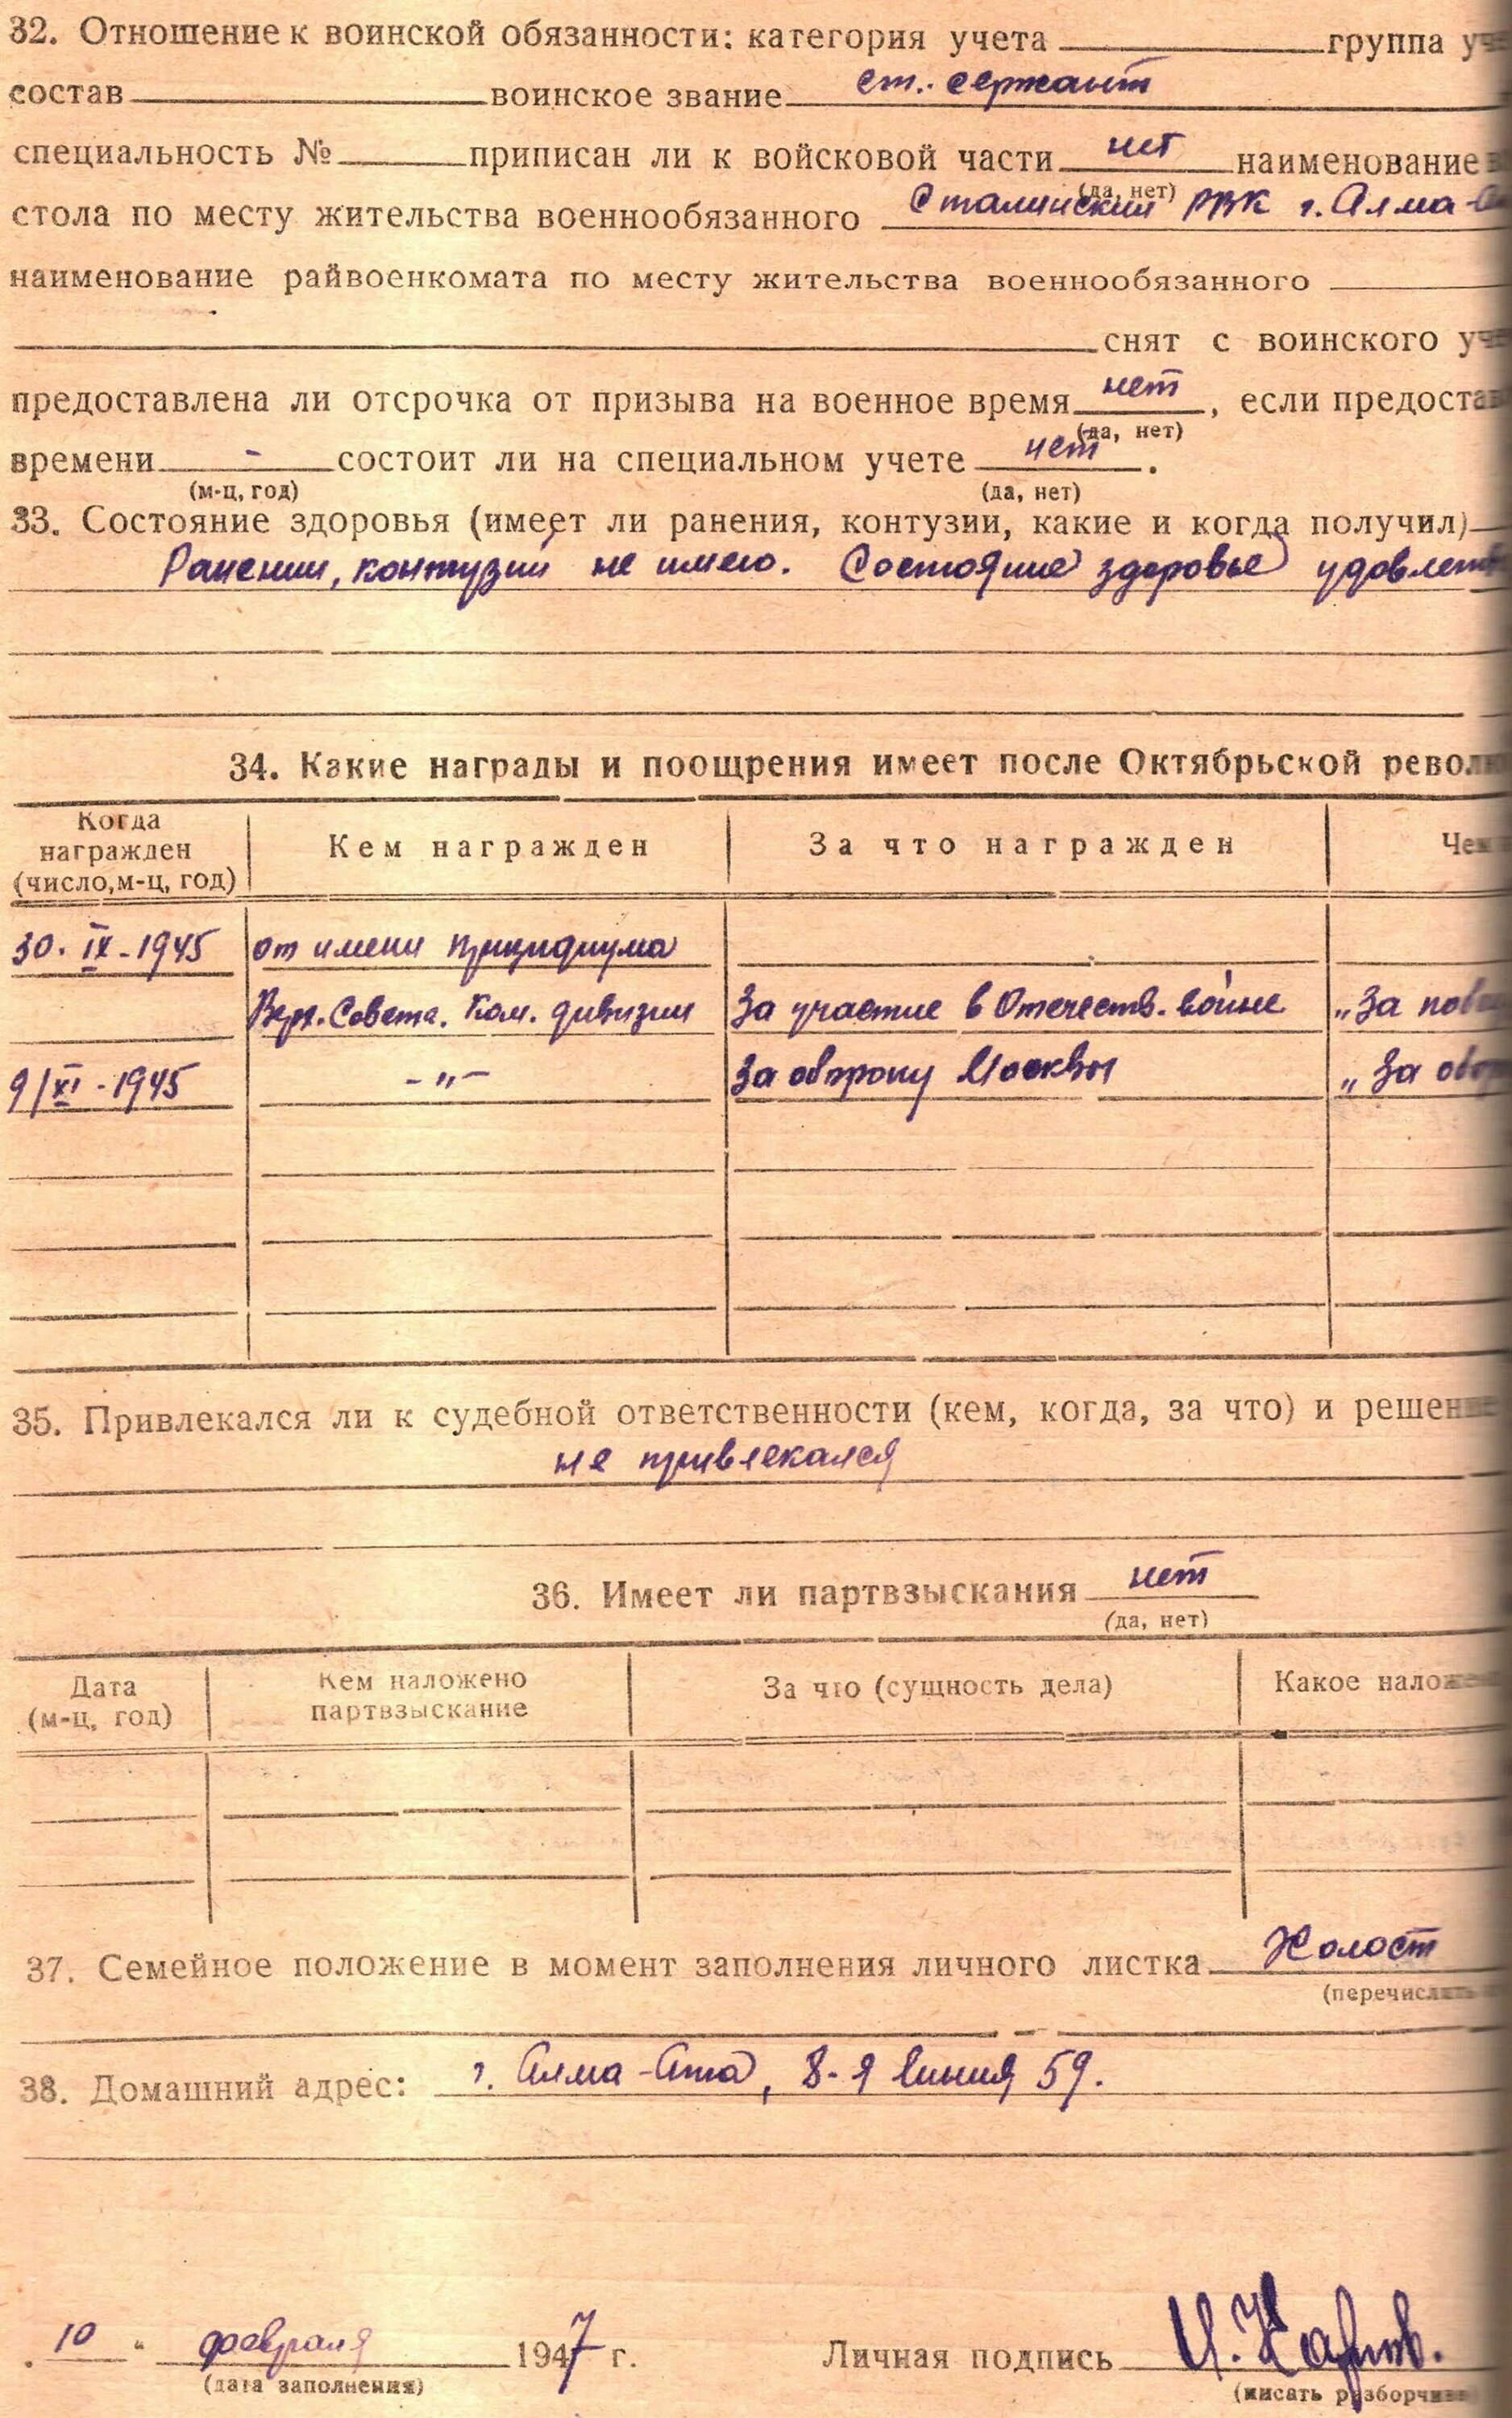 32. Отношение к воинской обязанности: категория учета ______ группа
состав ______ воинское звание ст. сержант
специальность № ______ приписан ли к войсковой части нет наименование
(да, нет)
стола по месту жительства военнообязанного Сталинский РВК г. Алма-
наименование райвоенкомата по месту жительства военнообязанного ______
______ снят с воинского
предоставлена ли отсрочка от призыва на военное время нет, если
(да, нет)
времени - состоит ли на специальном учете нет.
(м-ц, год) (да, нет)
33. Состояние здоровья (имеет ли ранения, контузии, какие и когда получил)
Ранении, контузий не имею. Состояние здоровье
34. Какие награды и поощрения имеет после Октябрьской
Когда награжден (число, м-ц, год) | Кем награжден | За что награжден |
30. IX - 1945 | от имени президиума
Верх. Совета. Ком. дивизии | За участие в Отечеств. войне | „За
9/XI - 1945 | -„- | За оборону Москвы | „За
35. Привлекался ли к судебной ответственности (кем, когда, за что) и
не привлекался
36. Имеет ли партвзыскания нет
(да, нет)
Дата (м-ц, год) | Кем наложено партвзыскание | За что (сущность дела) | Какое
37. Семейное положение в момент заполнения личного листка Холост
38. Домашний адрес: г. Алма-Ата, 8-я линия 59.
„10“ февраля 1947 г. Личная подпись
(дата заполнения) (писать